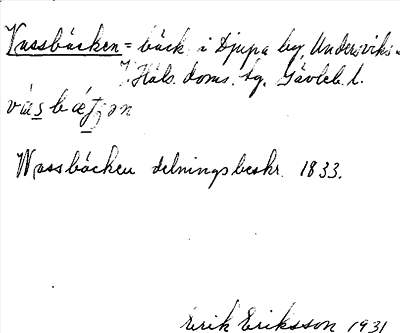 Vassbäcken = bäck i Djupa by, Undersviks
V. Häls. doms. sg. Gävleb. l.
våsbætʃən
Wassbäcken delningsbeskr. 1833.
Erik Eriksson 1931